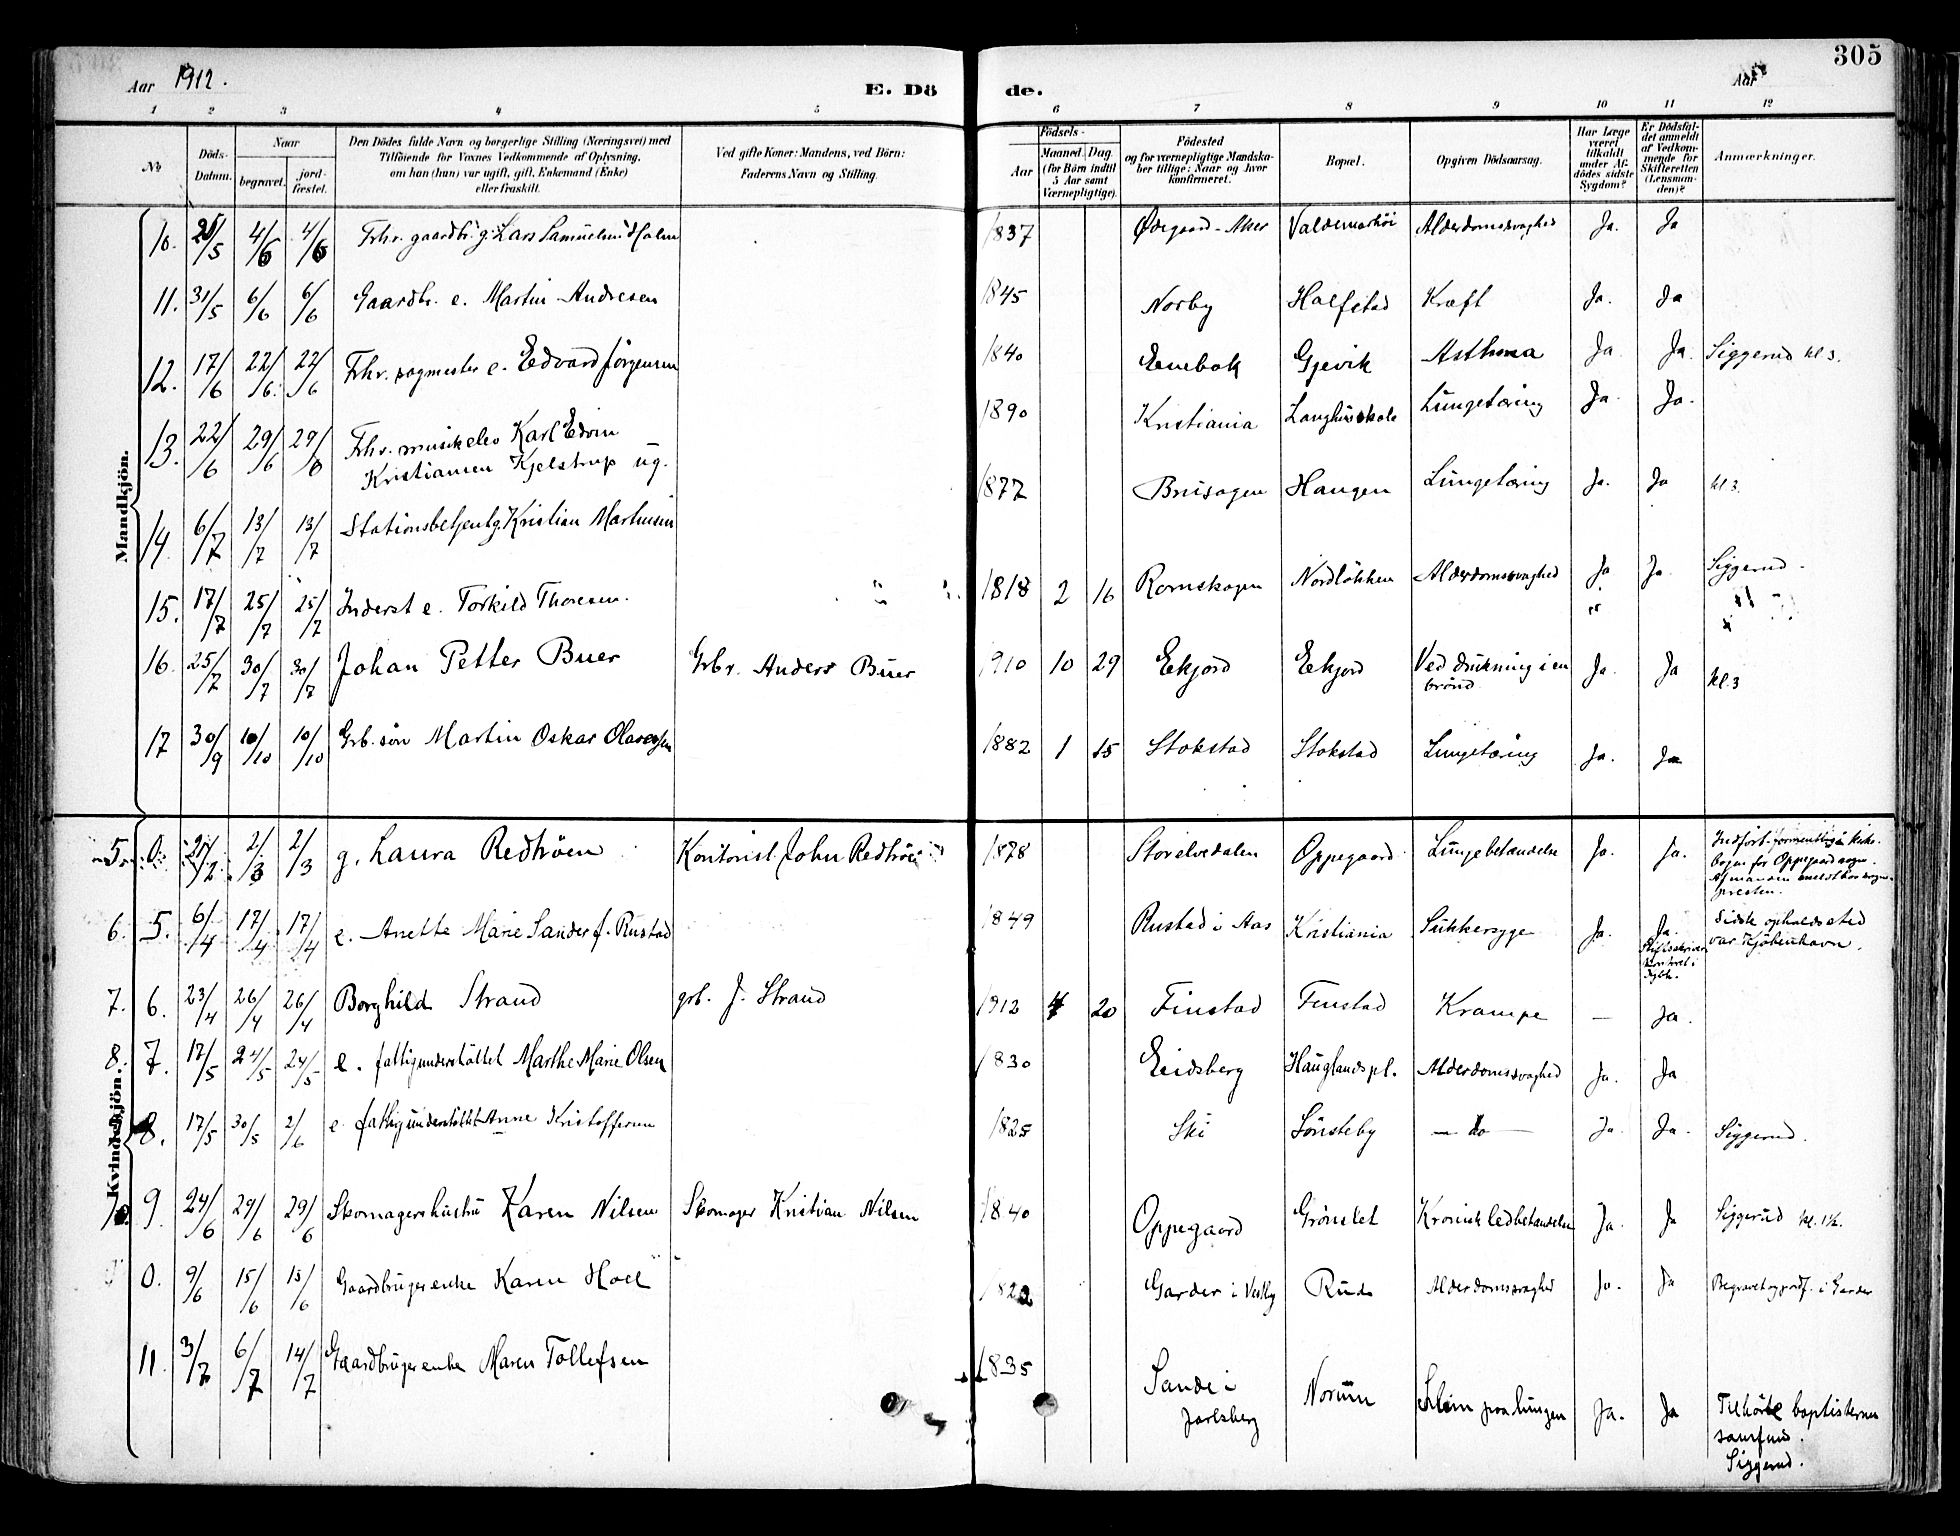 305
Aar 1912.
E. Dö
de.
Aar
1 2 3 4 5 6 7 8 9 10 11 12
No
Döds-Datum.
Naar
begravet.
jord-fæstet.
Den Dödes fulde Navn og borgerlige Stilling (Næringsvei) med
Tilföiende for Voxnes Vedkommende af Oplysning,
om han (hun) var ugift, gift, Enkemand (Enke)
eller fraskilt.
Ved gifte Koner: Mandens, ved Börn:
Faderens Navn og Stilling.
Födsels-
Aar
Maaned. Dag.
(for Börn indtil
5 Aar samt
Værnepligtige).
Födested
og for værnepligtige Mandska-
ber tillige: Naar og hvor
konfirmeret.
Bopæl.
Opgiven Dödsaarsag.
Har Læge
været
tilkaldt
under Af-
dödes sidste
Sygdom?
Er Dödsfal-
det anmeldt
af Vedkom-
mende for
Skifteretten
(Lensman-
den)?
Anmærkninger.
Mandkjön.
10. 4/6 4/6 Fhr. gaardbr. g. Lars Samuelsen Holm 1837 Ødegaard - Aker Valdemarhöi Alderdomssvaghed Ja. Ja
11. 31/5 6/6 6/6 Gaardbr. e. Martin Andresen 1845 Norby Halfstad Kræft Ja. Ja
12. 17/6 22/6 22/6 Fhr. sagmester e. Edvard Jörgensen 1840 Enebak Gjevik Asthma Ja Ja. Siggerud kl 3.
13. 22/6 29/6 29/6 Fhr. musikelev Karl Edvin
Kristiansen Kjelstrup ug. 1890 Kristiania Langhusskole Lungetæring Ja. Ja.
14. 6/7 13/7 13/7 Stationsbetjent g. Kristian Martinsen 1877 Brusagen Haugen Lungetæring Ja. Ja kl 3.
15. 17/7 25/7 25/7 Inderst e. Torkild Thoresen. 1818 2 16 Romskogen Nordlökken Alderdomssvaghed Ja Ja. Siggerud.
16. 25/7 30/7 30/7 Johan Petter Buer Grbr. Anders Buer 1910 10 29 Eekjord Eekjord Ved drukning i en
brönd. Ja. Ja kl.3
17 30/9 10/10 10/10 Grb. sön Martin Oskar Olavesen 1882 1 15 Stokstad Stokstad Lungetæring Ja. Ja
Kvindekjön.
5. 2/3 2/3 g. Laura Redtröen Kontorist John Redtröen 1878 Storelvedalen Oppegaard Lungebetændelse Ja. Ja. Indfört formentlig i kirke-
bogen for Oppegaard sogn.
Af manden meldt hos sogne-
presten.
6. 5. 6/4 17/4 17/4 e. Anette Marie Sander f. Rustad 1849 Rustad i Aas Kristiania Sukkersyge Ja. Ja.
Sidste opholdssted
var Kjöbenhavn.
7. 6. 23/4 26/4 26/4 Borghild Strand grb. J. Strand 1912 4 20 Finstad Finstad Krampe — Ja.
8. 7. 17/5 24/5 24/5 e. fattigunderstöttet Marthe Marie Olsen 1830 Eidsberg Hauglandspl. Alderdomssvaghed Ja. Ja
8. 17/5 30/5 2/6 e. fattigunderstöttet Anne Kristoffersen 1825 Ski Sönsteby — do — Ja Ja. Siggerud.
10 9. 24/6 29/6 29/6 Skomagerhustru Karen Nilsen Skomager Kristian Nilsen 1840 Oppegaard Grönslet Kronisk ledbetændelse Ja. Ja Siggerud kl. 1½.
0. 9/6 15/6 15/6 Gaardbrugerenke Karen Holl 1822 Garder i Vestby Rud Alderdomssvaghed Ja. Ja Begravet og jordf. i Garder
11. 3/7 6/7 14/7 Gaardbrugerenke Maren Tollefsen 1835 Sande i
Jarlsberg Norum Slim paa lungen Ja. Ja Tilhörte baptisternes
samfund.
Siggerud.